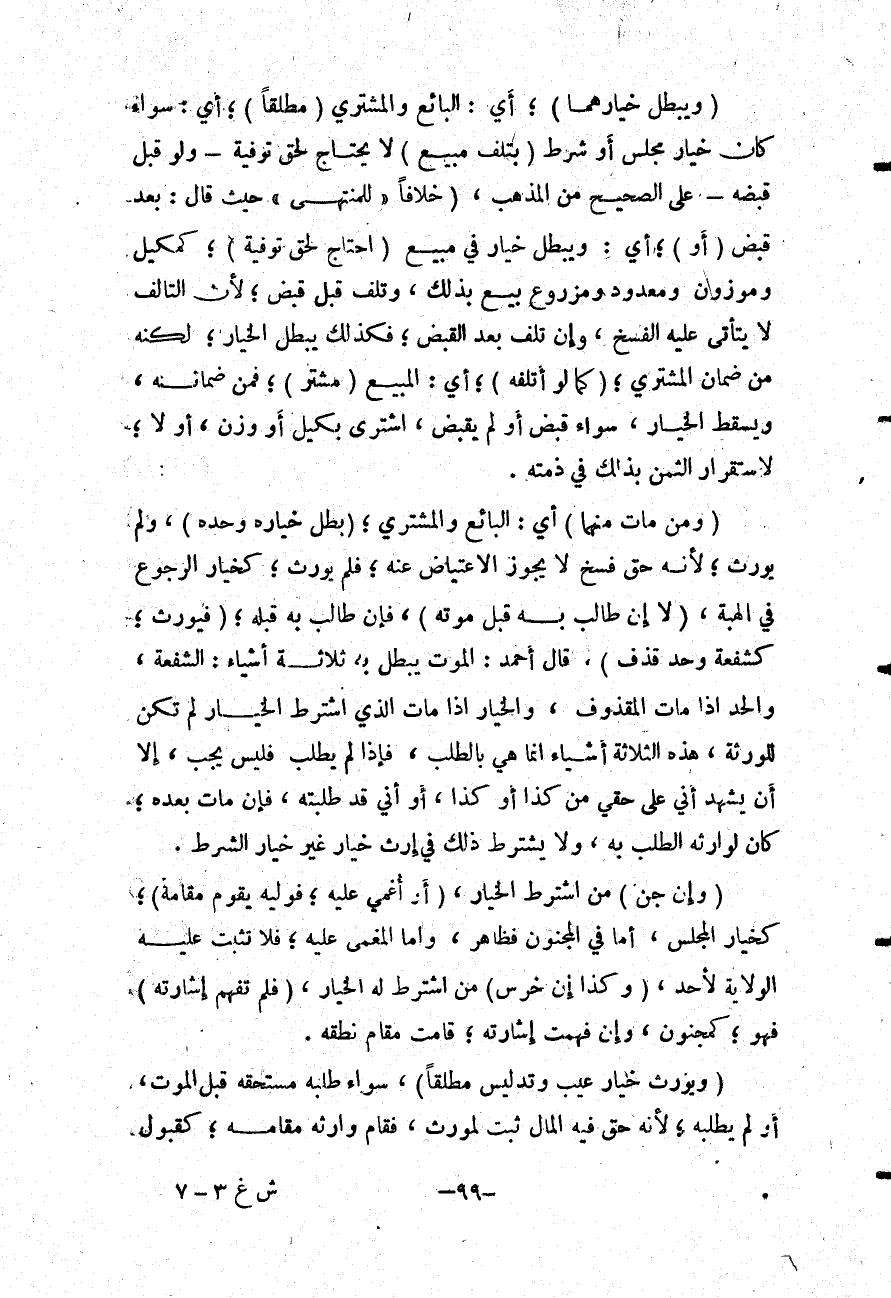 ( ويبطل خيارهما ) ؛ أي : البائع والمشتري ( مطلقاً ) ؛ أي : سواء
كان خيار مجلس أو شرط ( بتلف مبيع ) لا يحتاج لحق توفية – ولو قبل
قبضه – على الصحيح من المذهب ، ( خلافاً « للمنتهى » حيث قال : بعد
قبض ( أو ) ؛ أي : ويبطل خيار في مبيع ( احتاج لحق توفية ) ؛ كمكيل
وموزون ومعدود ومزروع بيع بذلك ، وتلف قبل قبض ؛ لأن التالف
لا يتأتى عليه الفسخ ، وإن تلف بعد القبض ؛ فكذلك يبطل الخيار ؛ لكنه
من ضمان المشتري ؛ ( كما لو أتلفه ) ؛ أي : المبيع ( مشتر ) ؛ فمن ضمانه ،
ويسقط الخيار ، سواء قبض أو لم يقبض ، اشترى بكيل أو وزن ، أو لا ؛
لاستقرار الثمن بذلك في ذمته .
( ومن مات منهما ) أي : البائع والمشتري ؛ ( بطل خياره وحده ) ، ولم
يورث ؛ لأنه حق فسخ لا يجوز الاعتياض عنه ؛ فلم يورث ؛ كخيار الرجوع
في الهبة ، ( لا إن طالب به قبل موته ) ، فإن طالب به قبله ؛ ( فيورث ؛
كشفعة وحد قذف ) ، قال أحمد : الموت يبطل به ثلاثة أشياء : الشفعة ،
والحد اذا مات المقذوف ، والخيار اذا مات الذي اشترط الخيار لم تكن
للورثة ، هذه الثلاثة أشياء انما هي بالطلب ، فإذا لم يطلب فليس يجب ، إلا
أن يشهد أني على حقي من كذا أو كذا ، أو أني قد طلبته ، فإن مات بعده ؛
كان لوارثه الطلب به ، ولا يشترط ذلك في إرث خيار غير خيار الشرط .
( وإن جن ) من اشترط الخيار ، ( أو أُغمي عليه ؛ فوليه يقوم مقامه ) ؛
كخيار المجلس ، أما في المجنون فظاهر ، وأما المغمى عليه ؛ فلا تثبت عليه
الولاية لأحد ، ( وكذا إن خرس ) من اشترط له الخيار ، ( فلم تفهم إشارته )
فهو ؛ كمجنون ، وإن فهمت إشارته ؛ قامت مقام نطقه .
( ويورث خيار عيب وتدليس مطلقاً ) ، سواء طلبه مستحقه قبل الموت ،
أو لم يطلبه ؛ لأنه حق فيه المال ثبت لمورث ، فقام وارثه مقامه ؛ كقبول
–٩٩–
ش غ ٣ – ٧
٦